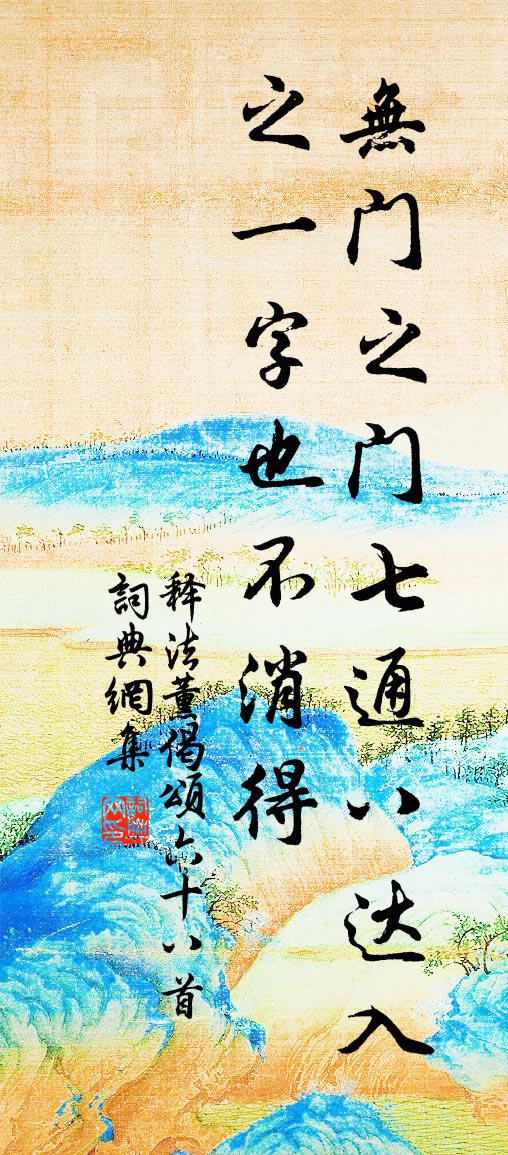 無门之门七通八达入
之一字也不消得
释法薰偈頌六十八首
詞典網集